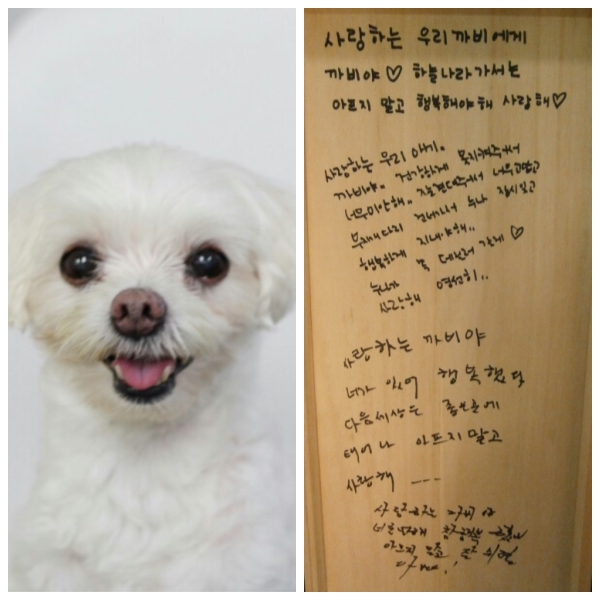 사랑하는 우리 까비에게
까비야♡ 하늘나라가서는
아프지 말고 행복해야해 사랑해♡
사랑하는 우리 애기..
까비야.. 건강하게 못지켜주서
너무미안해.. 잘견뎌주서 너무고맙고
무지개다리 건너가서 누나 잠시잊고
행복하게 지내야해..
누나가 꼭 데릴러 갈게♡
사랑해 영원히..
사랑하는 까비야
너가 있어 행복했단다
다음세상은 좋은곳에
태어나 아프지말고
사랑해 ---
사랑하는 까비야
아프지 말고